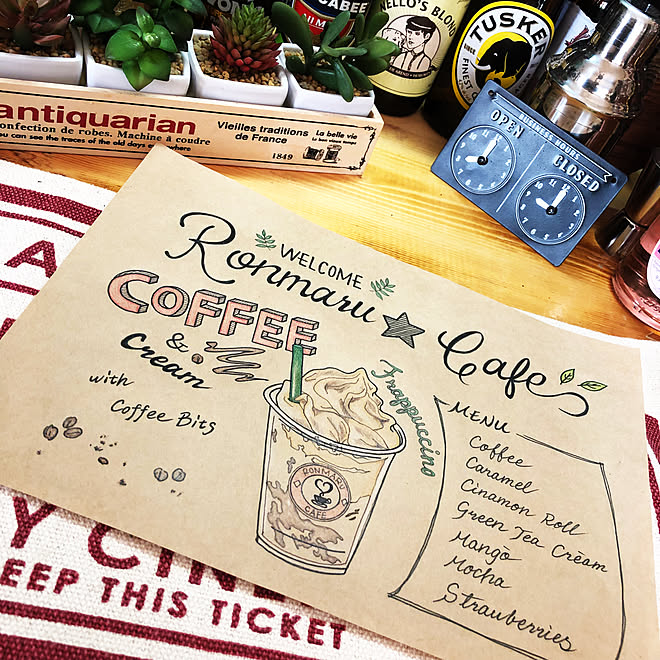 NELLO'S BLOND
CABEE
TUSKER
FINEST
antiquarian
Confection de robes. Machine à coudre
Vieilles traditions
de France
1849
La belle vie
BUSINESS HOURS
OPEN
CLOSED
WELCOME
Ronmaru Cafe
COFFEE
&
Cream
with
Coffee Bits
Frappuccino
RONMARU
CAFE
MENU
Coffee
Caramel
Cinamon Roll
Green Tea Cream
Mango
Mocha
Strauberries
KEEP THIS TICKET